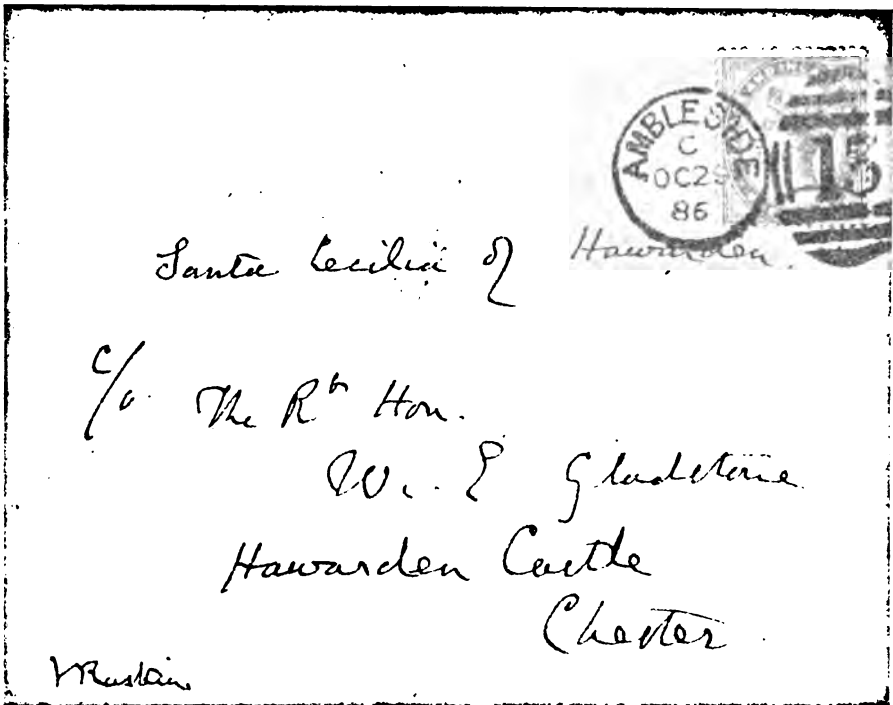 AMBLESIDE
C
OC29
86
15
Santa Cecilia of Hawarden.
c/o The Rt Hon.
W. E Gladstone
Hawarden Castle
Chester.
JRuskin